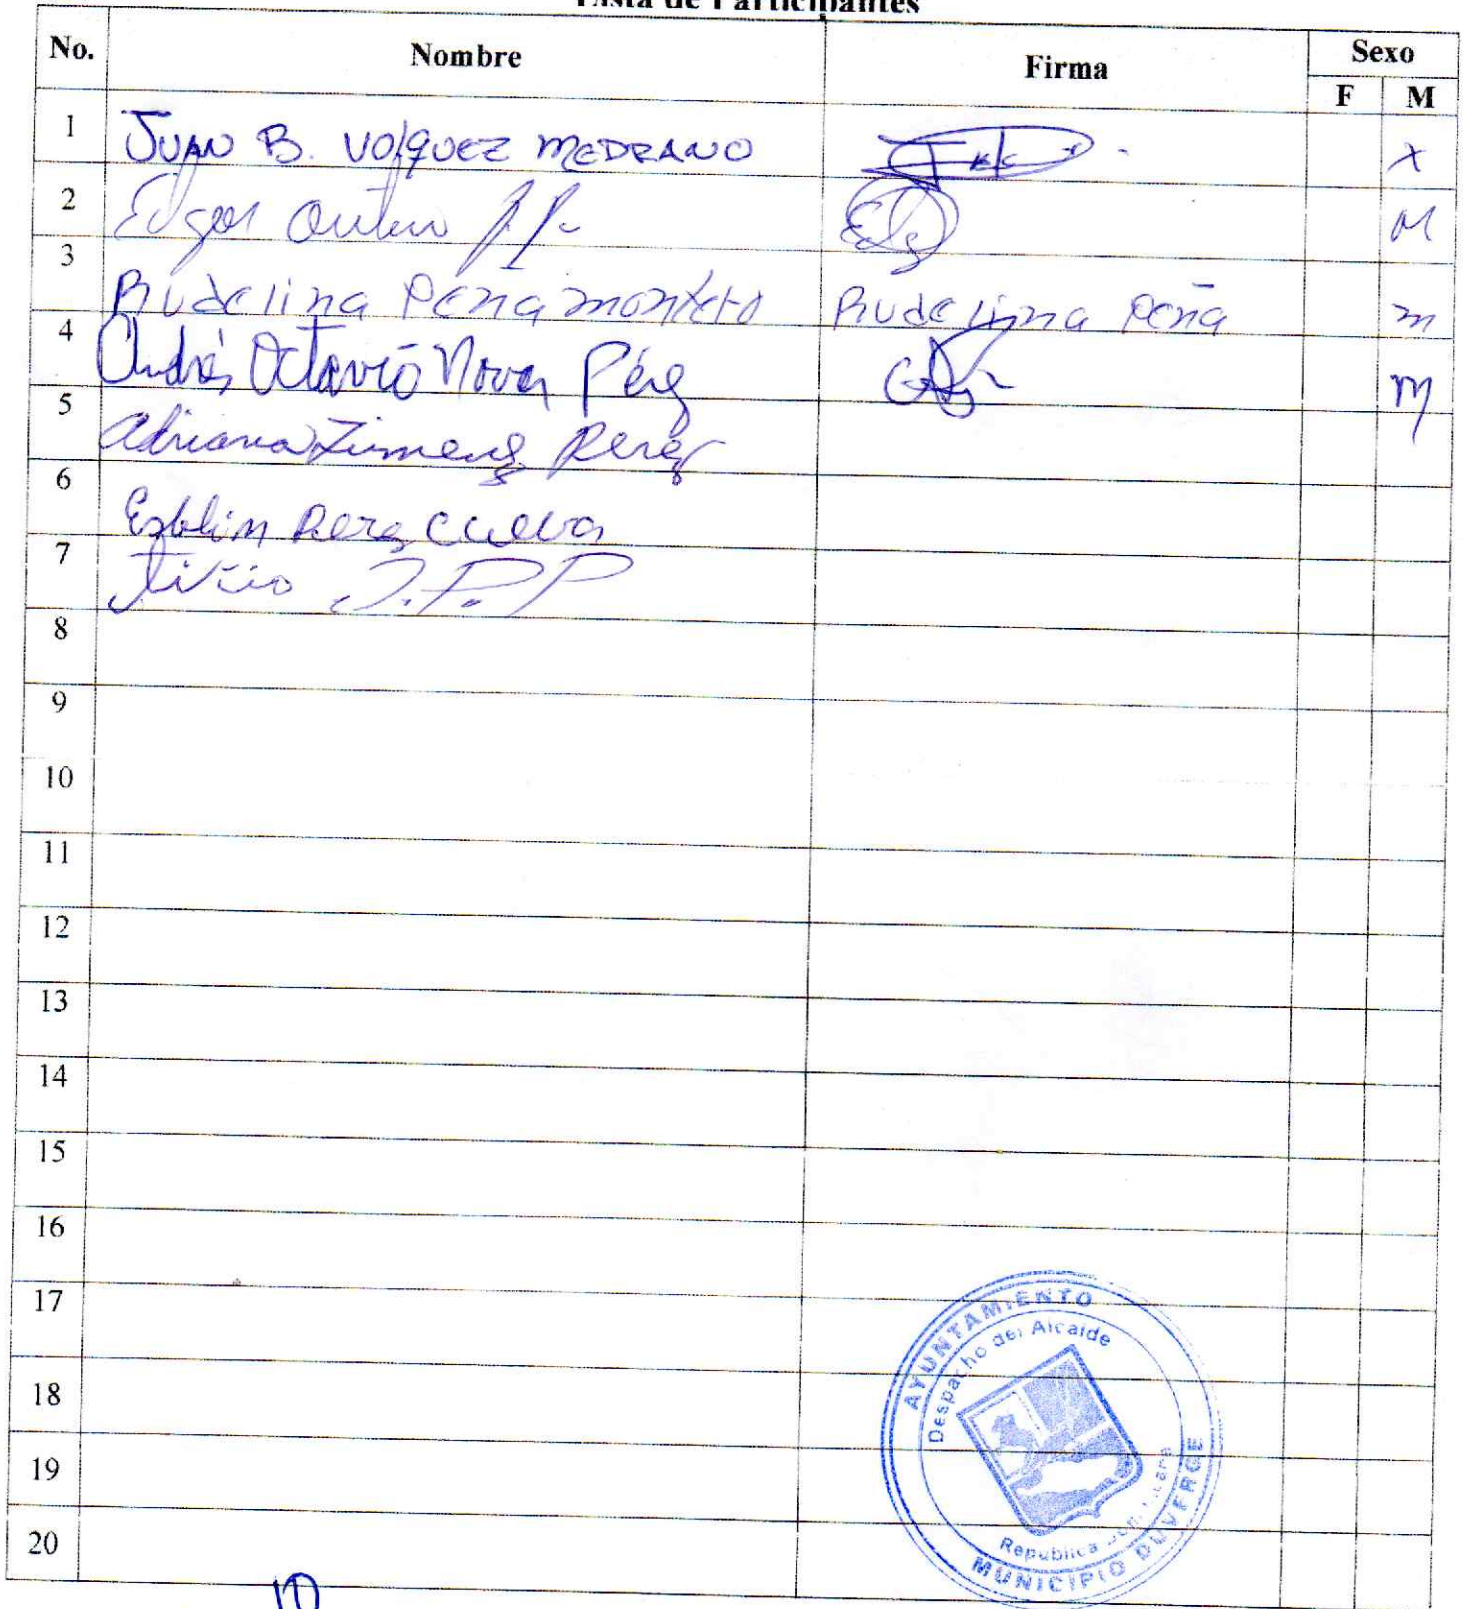 Lista de Participantes
No. Nombre Firma Sexo
F M
1 JUAN B. VOLQUEZ MEDRANO X
2 Edgar M
3 Rudelina Peña montero Rudelina Peña m
4 Andrés Octavio Nova Pérez M
5 Adriana Jimenez Perez
6 Perez Cueva
7 J.P.P
8
9
10
11
12
13
14
15
16
17
18
19
20
AYUNTAMIENTO
Despacho del Alcalde
Republica Dominicana
MUNICIPIO DUVERGE